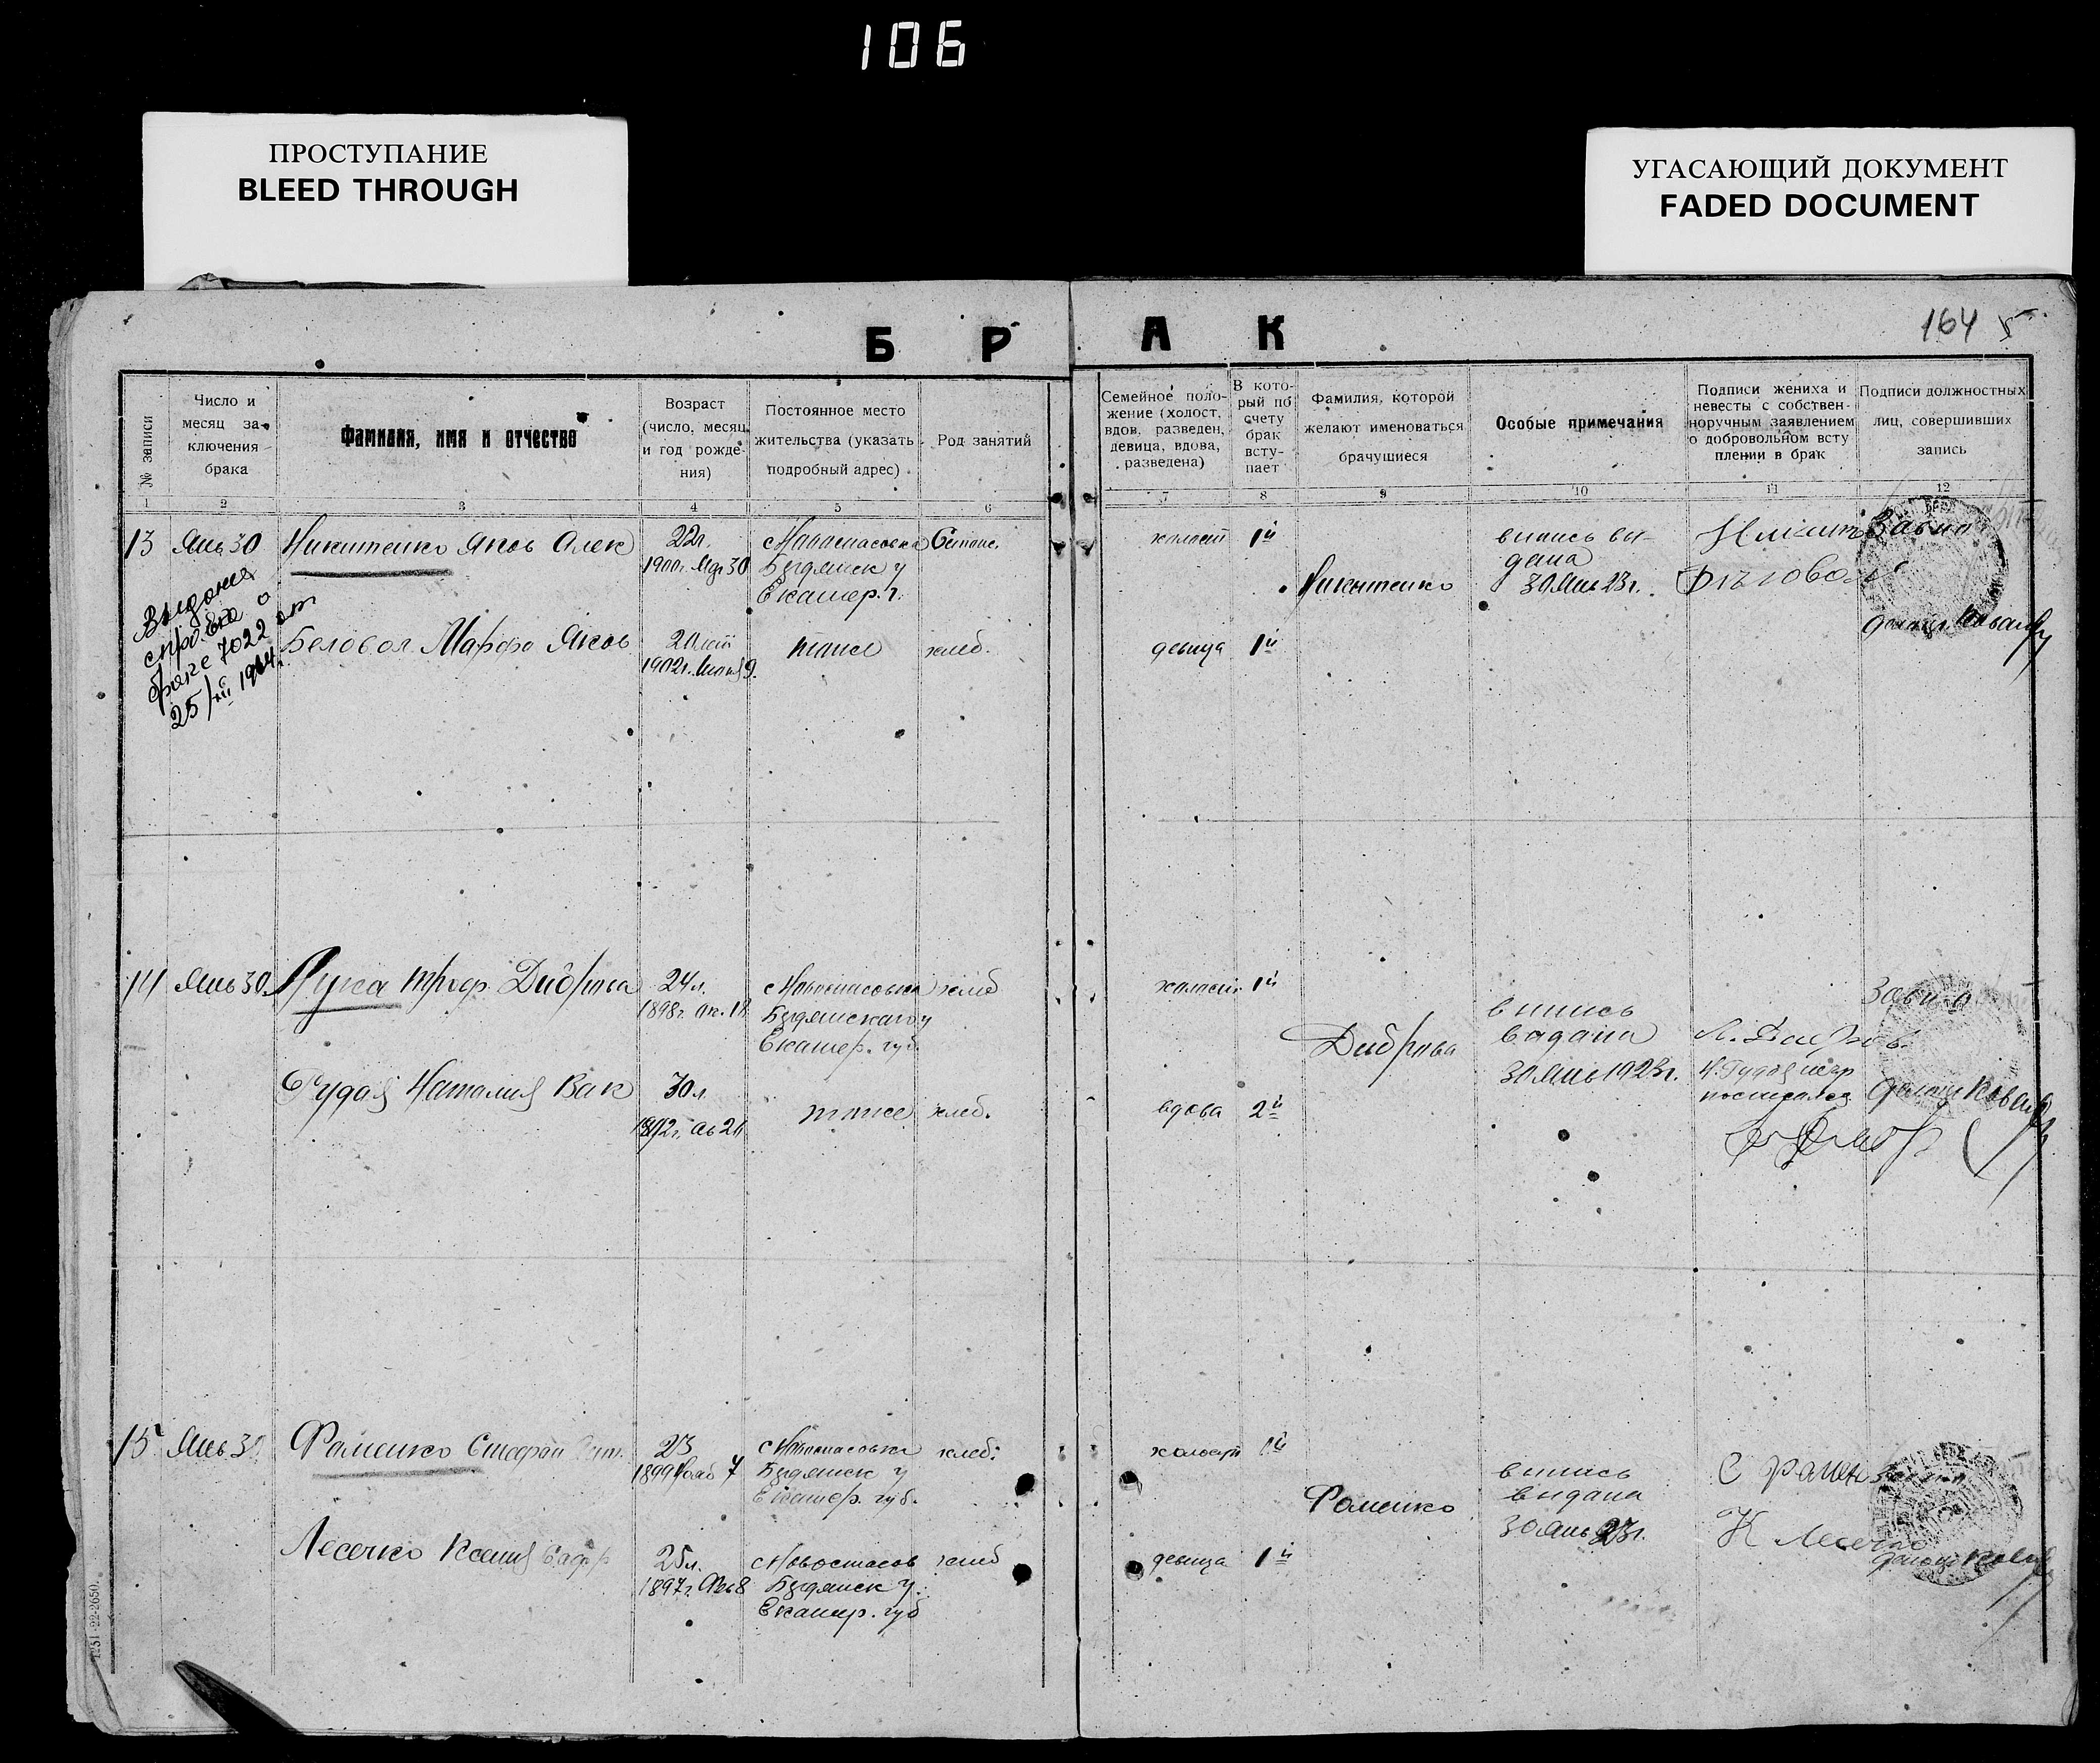 106
ПРОСТУПАНИЕ
BLEED THROUGH
УГАСАЮЩИЙ ДОКУМЕНТ
FADED DOCUMENT
БРАК
164
№ записи
Число и месяц заключения брака
Фамилия, имя и отчество
Возраст (число, месяц и год рождения)
Постоянное место жительства (указать подробный адрес)
Род занятий
Семейное положение (холост, вдов, разведен, девица, вдова, разведена)
В который по счету брак вступает
Фамилия, которой желают именоваться брачущиеся
Особые примечания
Подписи жениха и невесты с собственноручным заявлением о добровольном вступлении в брак
Подписи должностных лиц, совершивших запись
1 2 3 4 5 6 7 8 9 10 11 12
13 Янв 30 Никитенко Яков Алек
22л.
1900г. Мар 30
с Новоспасовка
Бердянск у
Екатер. г.
холост 1й
Никитенко
выпись вы-
дана
30 Янв 23г.
Выдана
справка о
браке 7022 от
25/III 1944г.
Беловол Марфа Яков
20 лет
1902г. Июня 9.
тоже хлеб.
девица 1й
14 Янв 30. Лука Троф. Диброва
24 л.
1898г. Ок. 18
с Новоспасовка хлеб
Бердянского у
Екатер. губ.
холост. 1й
Диброва
выпись
выдана
30 Янв 1923г.
Рудая Наталия Вак
30 л
тоже хлеб.
вдова 2й
15 Янв 30 Фоменко Стефан
23
1899
с Новоспасовка хлеб.
Бердянск у
Екатер. губ.
холост 1й
Фоменко
выпись
выдана
30 Янв 23г.
Лесечко Ксения
25 л.
1897г. Фев 8
с Новоспасов хлеб
Бердянск у.
Екатер. губ
девица 1й
К Лесечко
1251-22-2650.